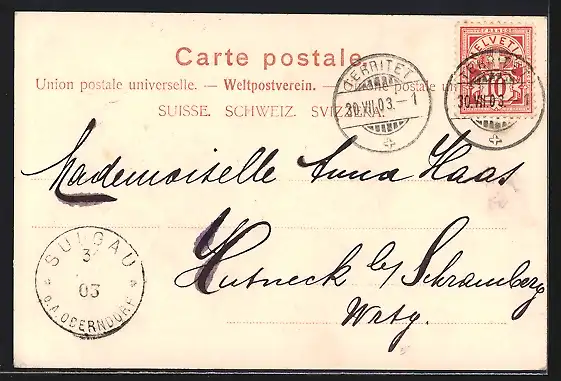 Carte postale.
Union postale universelle. — Weltpostverein. —
SUISSE. SCHWEIZ. SVIZZERA.
TERRITET
30.XII.03.-1
HELVETIA
10
30.XII.03
Mademoiselle Anna Haas
b/ Schramberg
Wrtg.
SULGAU
31
03
O.A.OBERNDORF